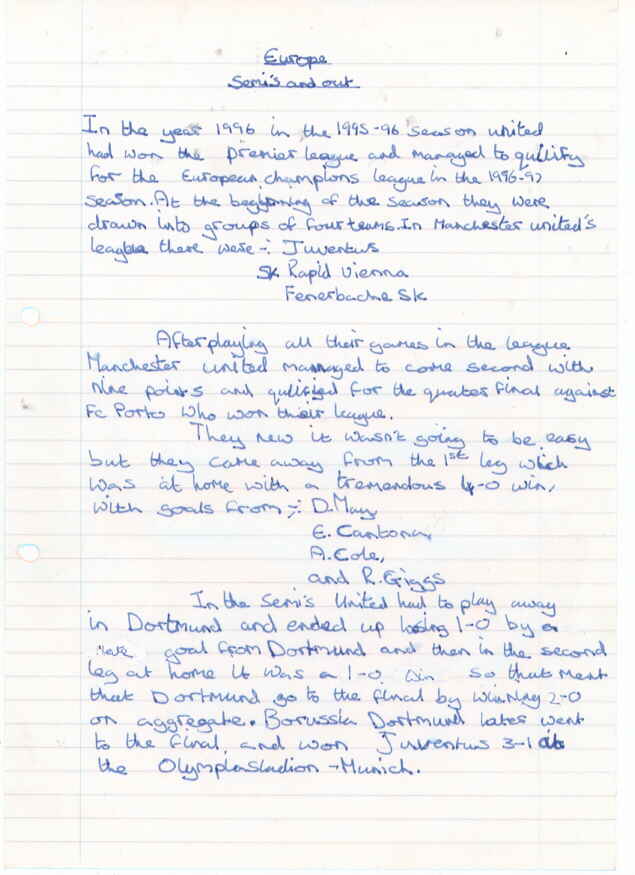 Europe
Semi's and out
In the year 1996 in the 1995-96 season united
had won the premier league and managed to qulilify
for the European champions league in the 1996-97
season. At the beginning of the season they were
drawn into groups of four teams. In Manchester united's
league there were :- Juventus
SK Rapid Vienna
Fenerbache SK
After playing all their games in the league
Manchester united managed to come second with
nine points and qulified for the quater final against
Fc Porto who won their league.
They new it wasn't going to be easy
but they came away from the 1st leg which
was at home with a tremendous 4-0 win,
with goals from :- D. May,
E. Cantona,
A. Cole,
and R. Giggs
In the Semi's United had to play away
in Dortmund and ended up losing 1-0 by a
goal from Dortmund and then in the second
leg at home it was a 1-0 win so that ment
that Dortmund go to the final by winning 2-0
on aggregate. Borussia Dortmund later went
to the final, and won Juventus 3-1 at
the Olympiastadion - Munich.